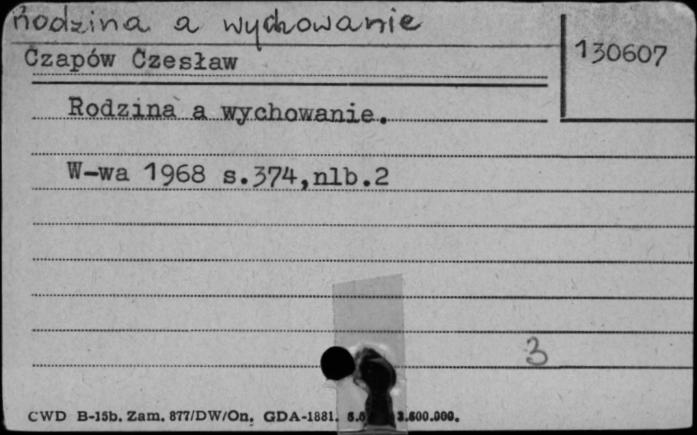 rodzina a wychowanie
Czapów Czesław
130607
Rodzina a wychowanie.
W-wa 1968 s.374,nlb.2
3
CWD B-15b. Zam. 877/DW/On. GDA-1881. 3.600.000.